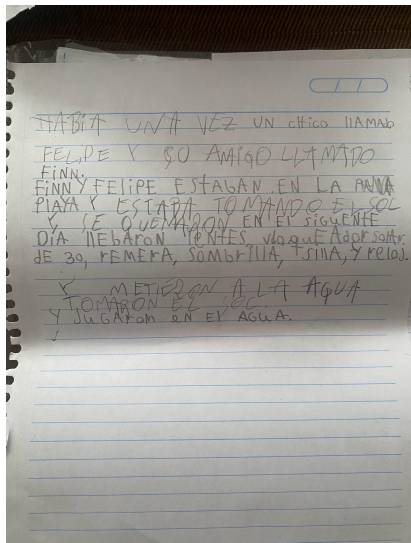 HABÍA UNA VEZ UN cHico llAMADO
FELIPE Y SU AMIGO LLAMADO
FINN.
FiNN Y FELIPE ESTABAN EN LA
PlAYA Y ESTABA TOMANDO EL SOL
Y SE QUEMARON EN El SiGUENTE
DÍA llEbARON lENTES, vloqueAdor solar
dE 30, REMERA, SOMbRillA, SillA, Y reloj.
Y METIERON A LA AGUA
TOMARON EL SOL.
Y JUGARon EN El AGUA.
Y